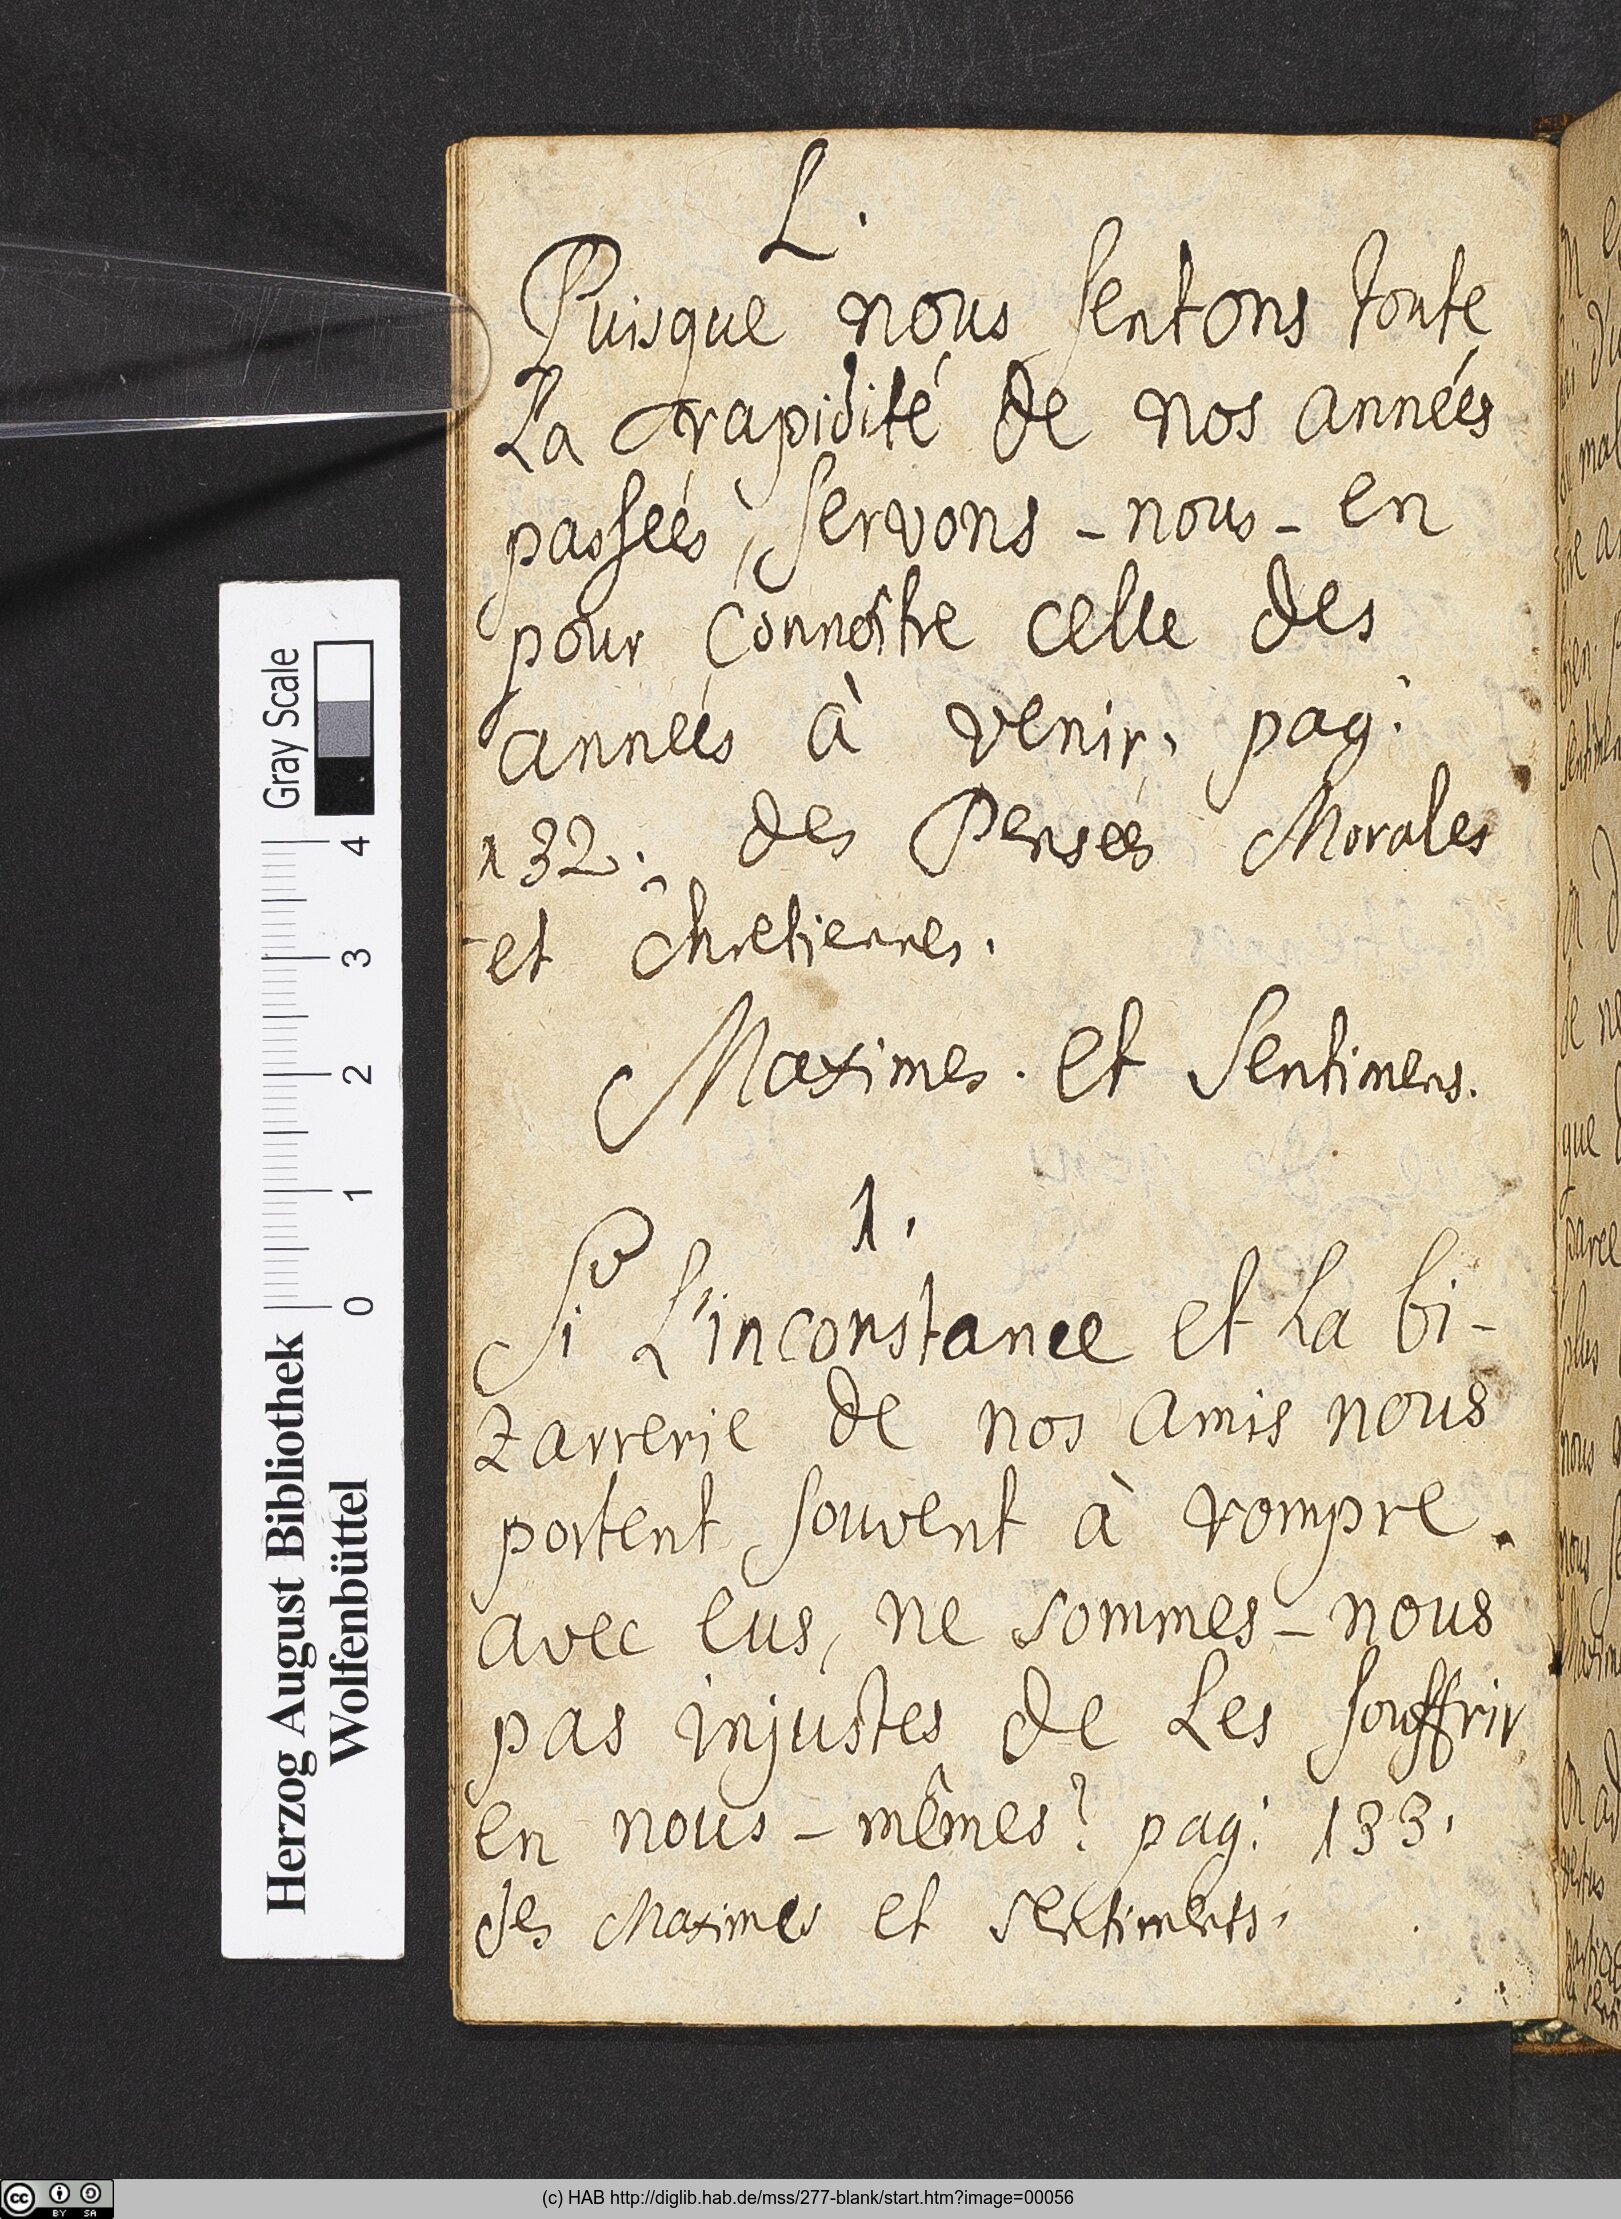 L.
Puisque nous sentons toute
La rapidité de nos années
passées, servons-nous-en
pour connoître celle des
années à venir. pag.
132. des Pensées Morales
et Chretiennes.
Maximes. et Sentimens.
1.
Si L'inconstance et La bi-
zarrerie de nos amis nous
portent souvent à rompre.
avec eus, ne sommes-nous
pas injustes de Les souffrir
en nous-mêmes? pag. 133.
des Maximes et sentiments.
Gray Scale
4
3
2
1
0
Herzog August Bibliothek
Wolfenbüttel
cc BY SA
(c) HAB http://diglib.hab.de/mss/277-blank/start.htm?image=00056